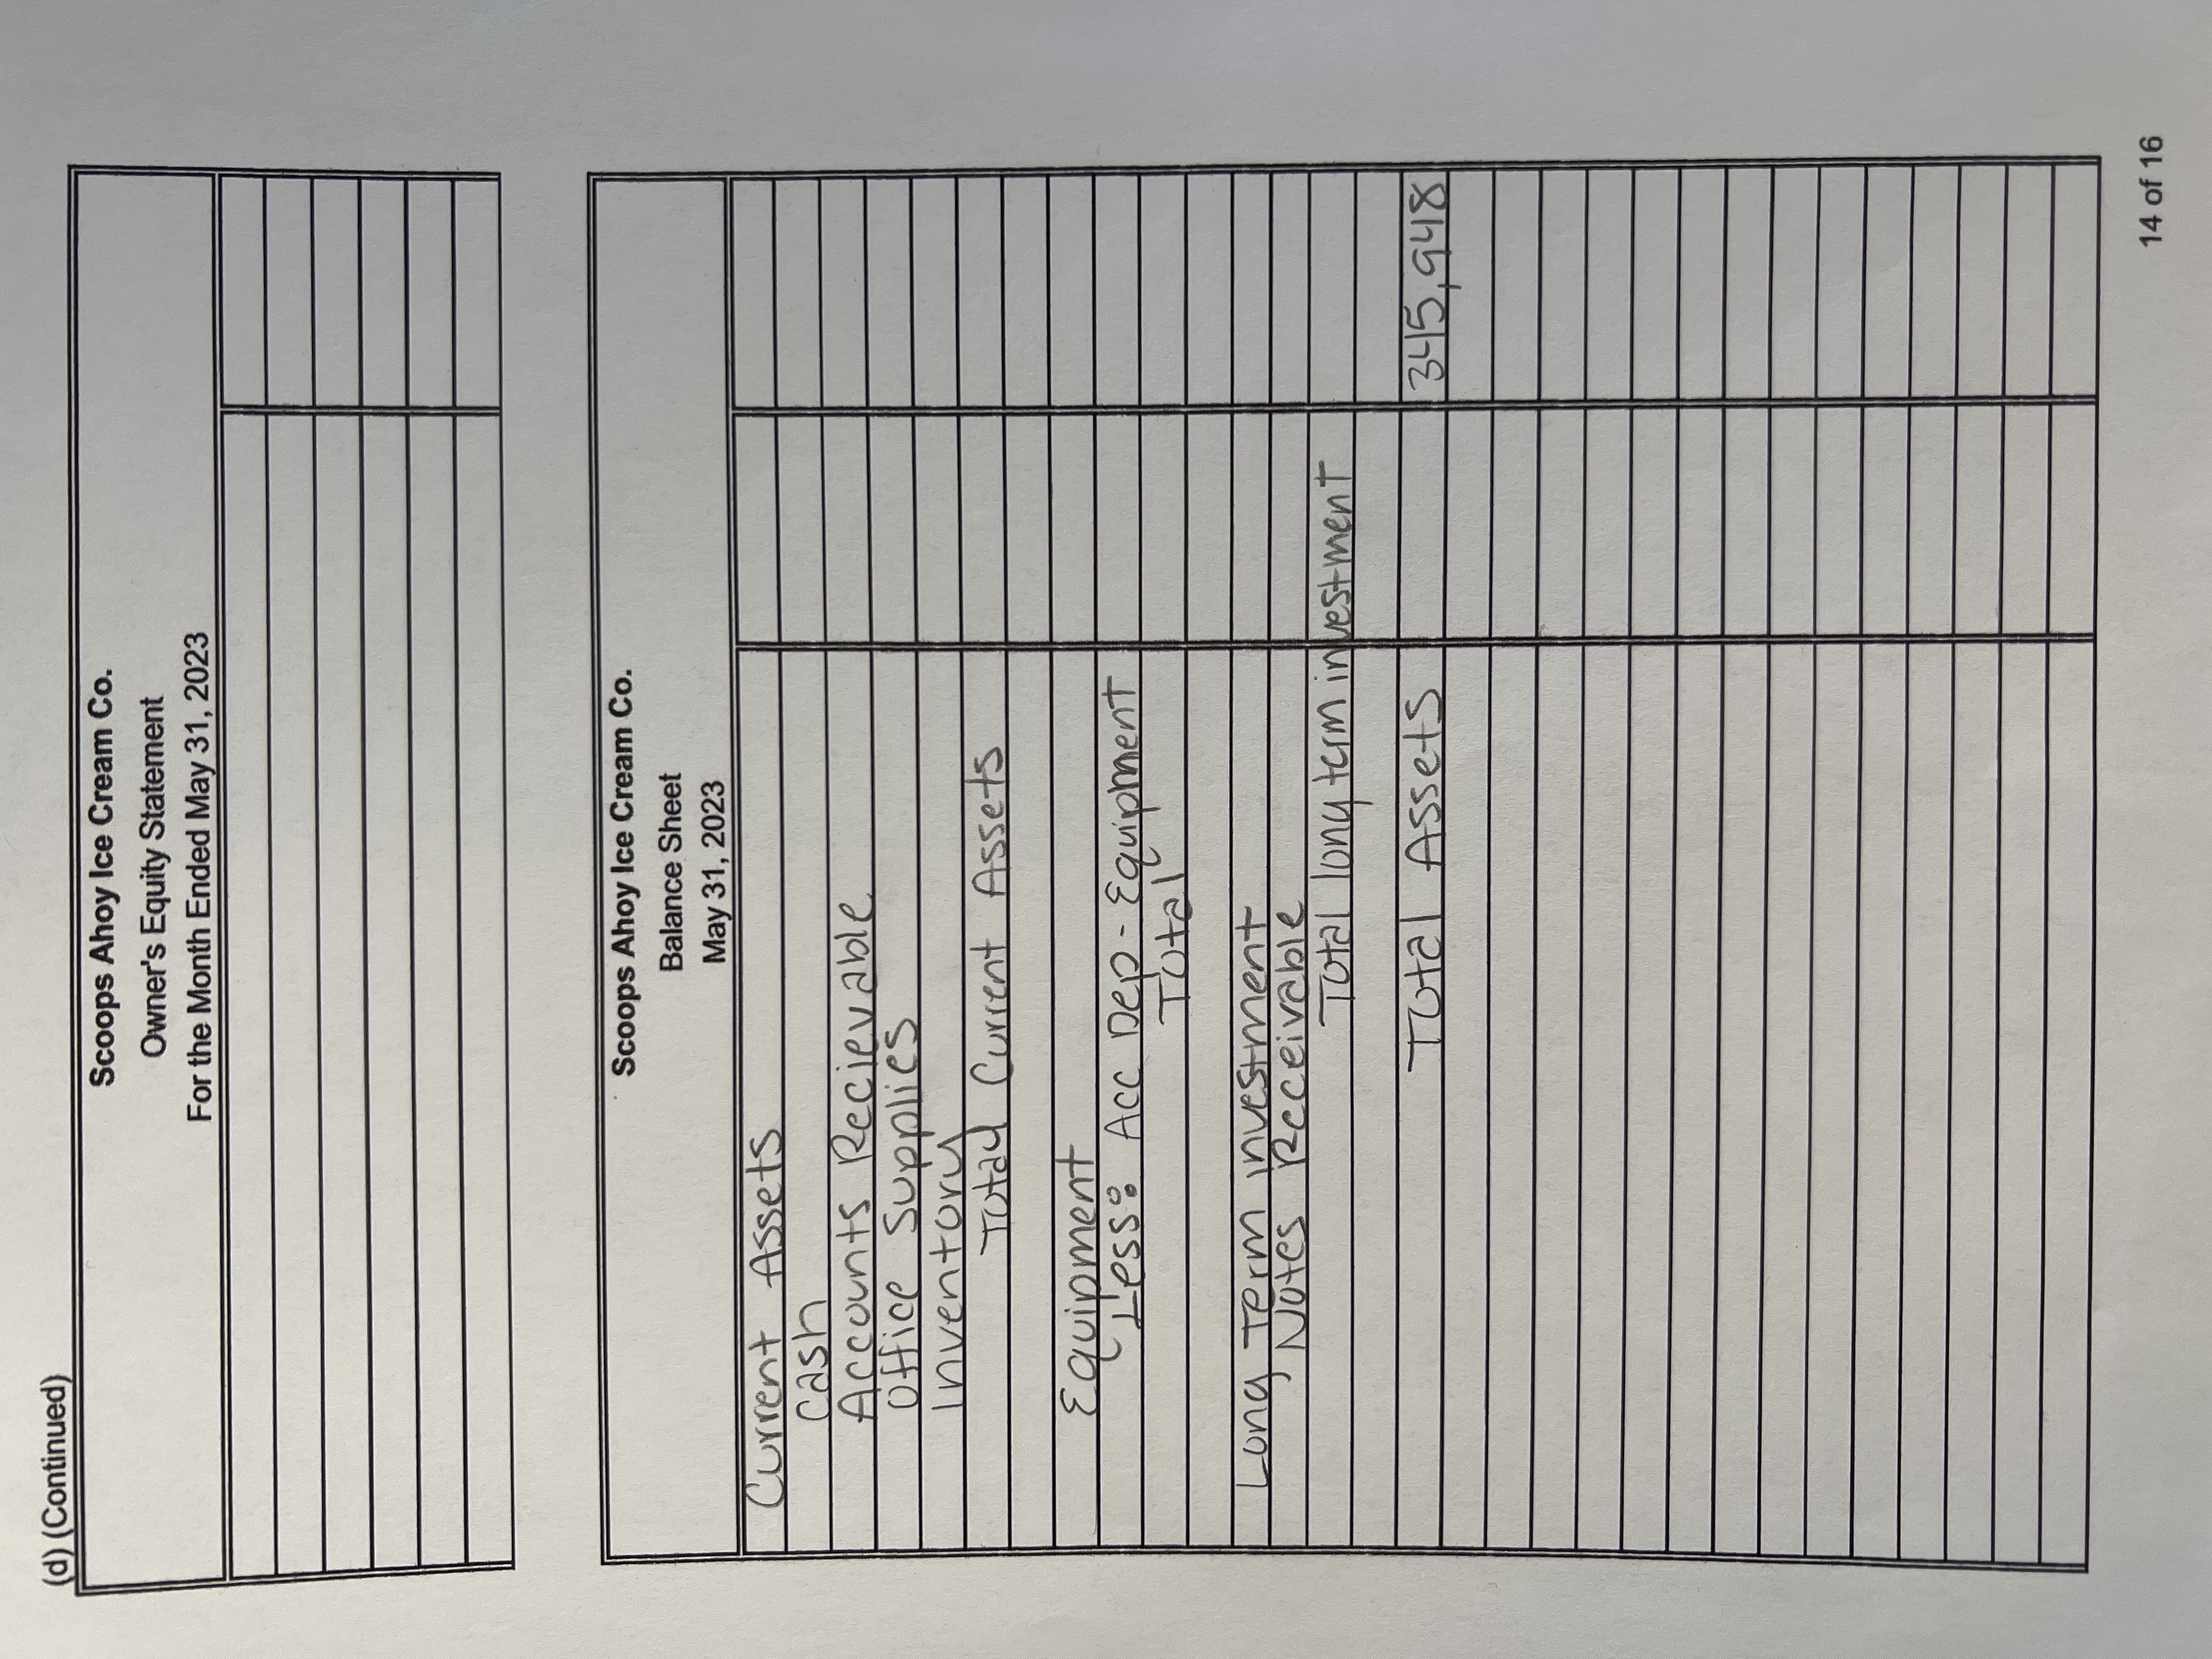 (d) (Continued)
Scoops Ahoy Ice Cream Co.
Owner's Equity Statement
For the Month Ended May 31, 2023
Scoops Ahoy Ice Cream Co.
Balance Sheet
May 31, 2023
Current Assets
Cash
Accounts Recievable
Office Supplies
Inventory
Total Current Assets
Equipment
Less: Acc Dep - Equipment
Total
Long Term investment
Notes Receivable
Total long term investment
Total Assets 345,948
14 of 16